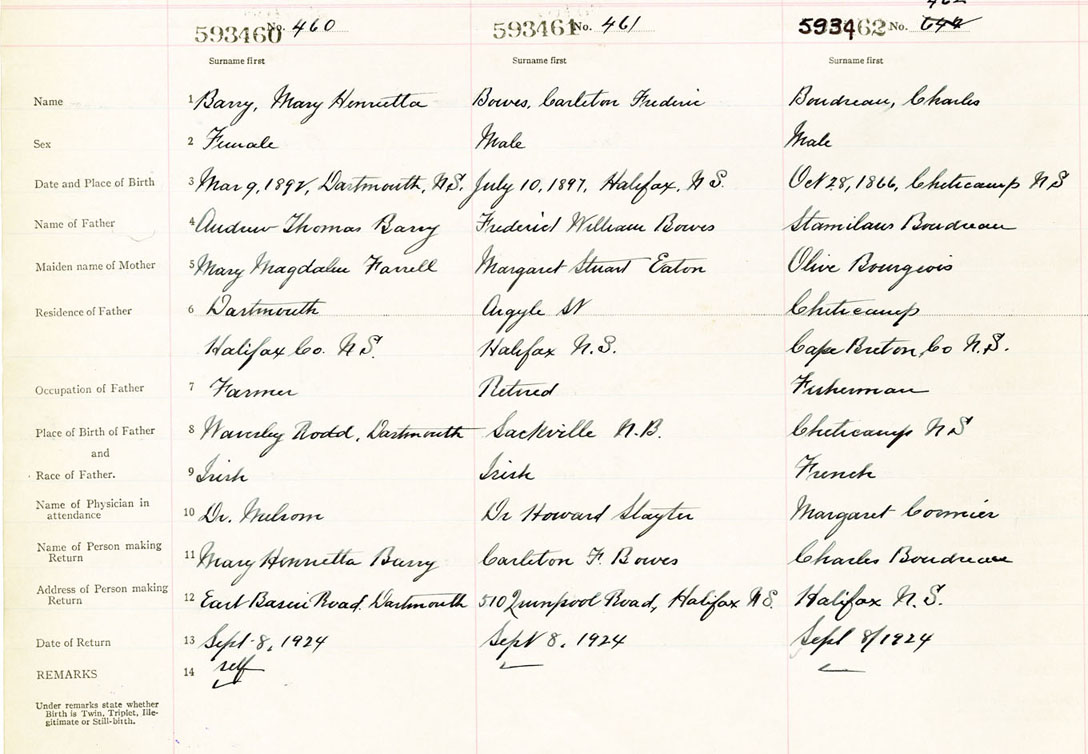 462
593460 No. 460 593461 No. 461 593462 No. 644
Surname first Surname first Surname first
Name 1 Barry, Mary Henrietta Bowes, Carleton Frederic Boudreau, Charles
Sex 2 Female Male Male
Date and Place of Birth 3 Mar 9, 1892, Dartmouth, N.S. July 10, 1897, Halifax, N.S. Oct 28, 1866, Cheticamp N S
Name of Father 4 Andrew Thomas Barry Frederick William Bowes Stanilaus Boudreau
Maiden name of Mother 5 Mary Magdalen Farrell Margaret Stuart Eaton Olive Bourgeois
Residence of Father 6 Dartmouth Argyle St Cheticamp
Halifax Co. N S. Halifax N.S. Cape Breton Co N.S.
Occupation of Father 7 Farmer Retired Fisherman
Place of Birth of Father 8 Waverley Road, Dartmouth Sackville N.B. Cheticamp N S
and
Race of Father. 9 Irish Irish French
Name of Physician in
attendance 10 Dr. Dr Howard Slayter Margaret Cormier
Name of Person making
Return 11 Mary Henrietta Barry Carleton F. Bowes Charles Boudreau
Address of Person making
Return 12 East Basin Road. Dartmouth 510 Quinpool Road, Halifax N S. Halifax N.S.
Date of Return 13 Sept 8, 1924 Sept 8, 1924 Sept 8/1924
REMARKS 14 self
Under remarks state whether
Birth is Twin, Triplet, Ille-
gitimate or Still-birth.